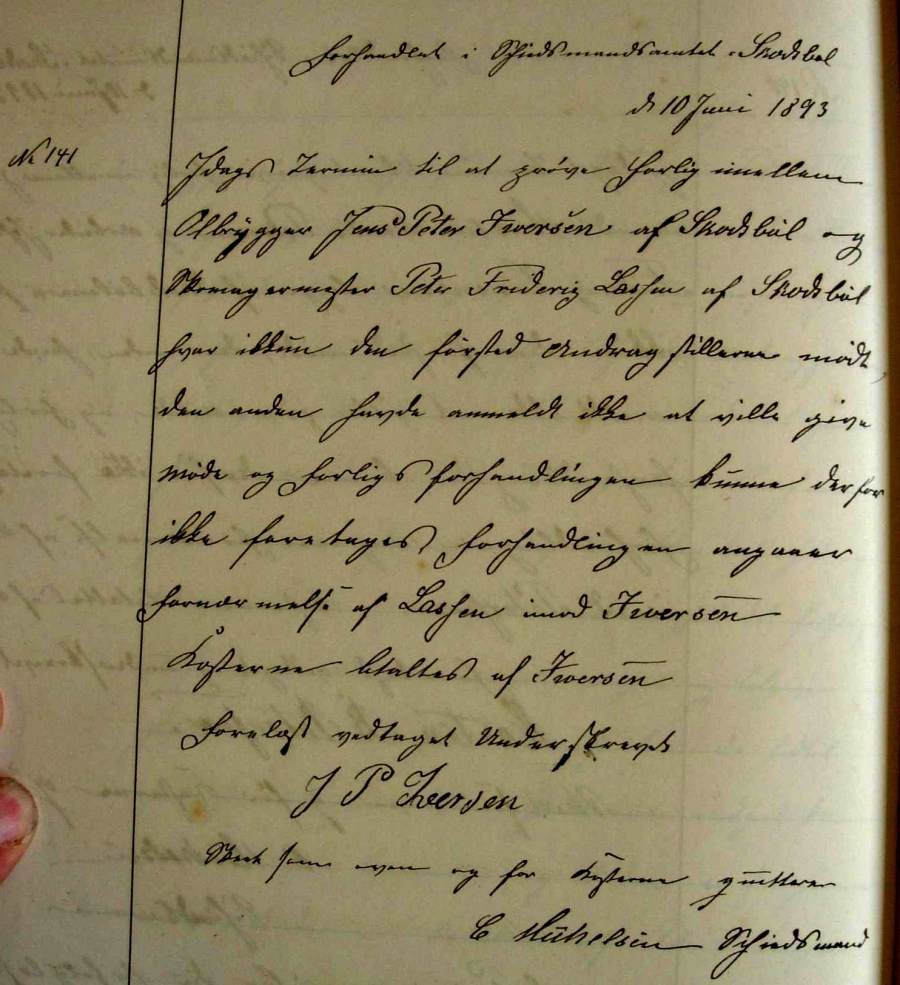 Forhandlet i Schiedsmandsamtet i Skodsbøl
d 10 Juni 1893
No 141
Idags Termin til at prøve Forlig imellem
Ølbrygger Jens Peter Iwersen af Skodsbøl og
Skomagermester Peter Friderig Lassen af Skodsbøl
hvor ikkun den førsted Andragstilleren mødt,
den anden havde anmeldt ikke at ville give
møde og Forligsforhandlingen kunne derfor
ikke foretages Forhandlingen angaaer
Fornærmelse af Lassen imod Iwersen
Kosterne btaltes af Iwersen
Forelæst vedtaget Underskrevet
J P Iwersen
Skeet som oven og for Kosterne quitterer
C Michelsen Schiedsmand